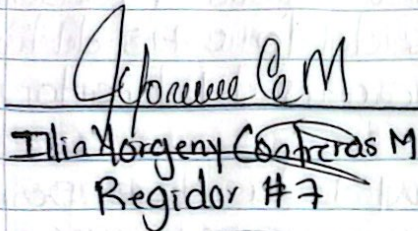 Illia Yorgeny Contreras M
Regidor #7